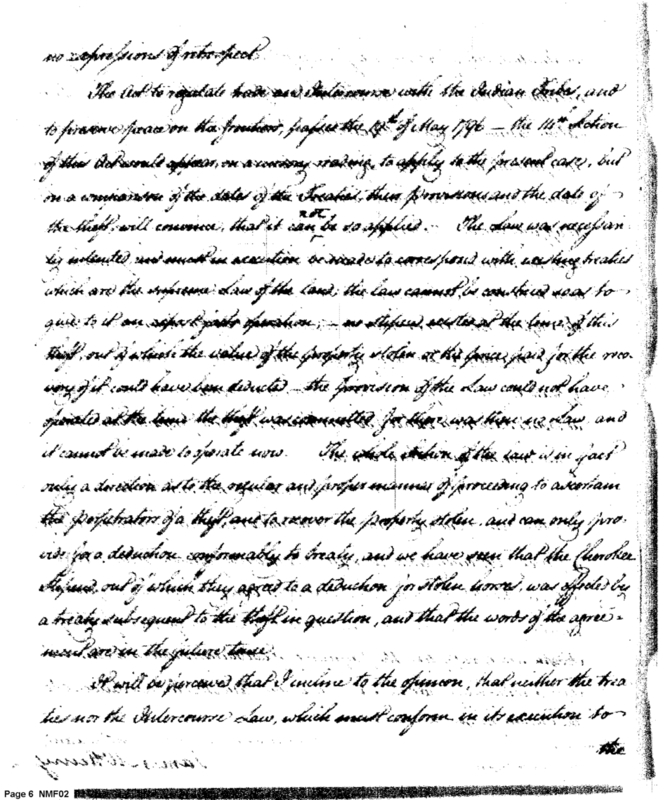 no expressions of retrospect.
The Act to regulate trade and Intercourse with the Indian Tribes, and
to preserve peace on the frontiers, passed the 19th of May 1796 — the 14th Section
of this Act would appear, on a cursory reading, to apply to the present case, but
on a comparison of the dates of the Treaties, their provisions and the date of
the theft, will convince, that it can not be so applied. The Law was necessari
ly intended and must in execution be made to correspond with existing treaties
which are the supreme Law of the land; the law cannot be construed so as to
give to it an expost facto operation; — no stipend existed at the time of this
theft, out of which the value of the property stolen or the price paid for the reco-
very of it could have been deducted — the provision of the Law could not have
operated at the time the theft was committed for there was then no Law and
it cannot be made to operate now. The whole Section of the law is in fact
only a direction as to the regular and proper manner of proceeding to ascertain
the perpetrators of a theft, and to recover the property stolen, and can only pro-
vide for a deduction conformably to treaty, and we have seen that the Cherokee
Stipend, out of which they agreed to a deduction for stolen horses, was affected by
a treaty subsequent to the theft in question, and that the words of the agree-
ment are in the future tense.
It will be perceived that I incline to the opinion, that neither the trea
ties nor the Intercourse Law, which must conform in its execution to
the
Page 6 NMF02